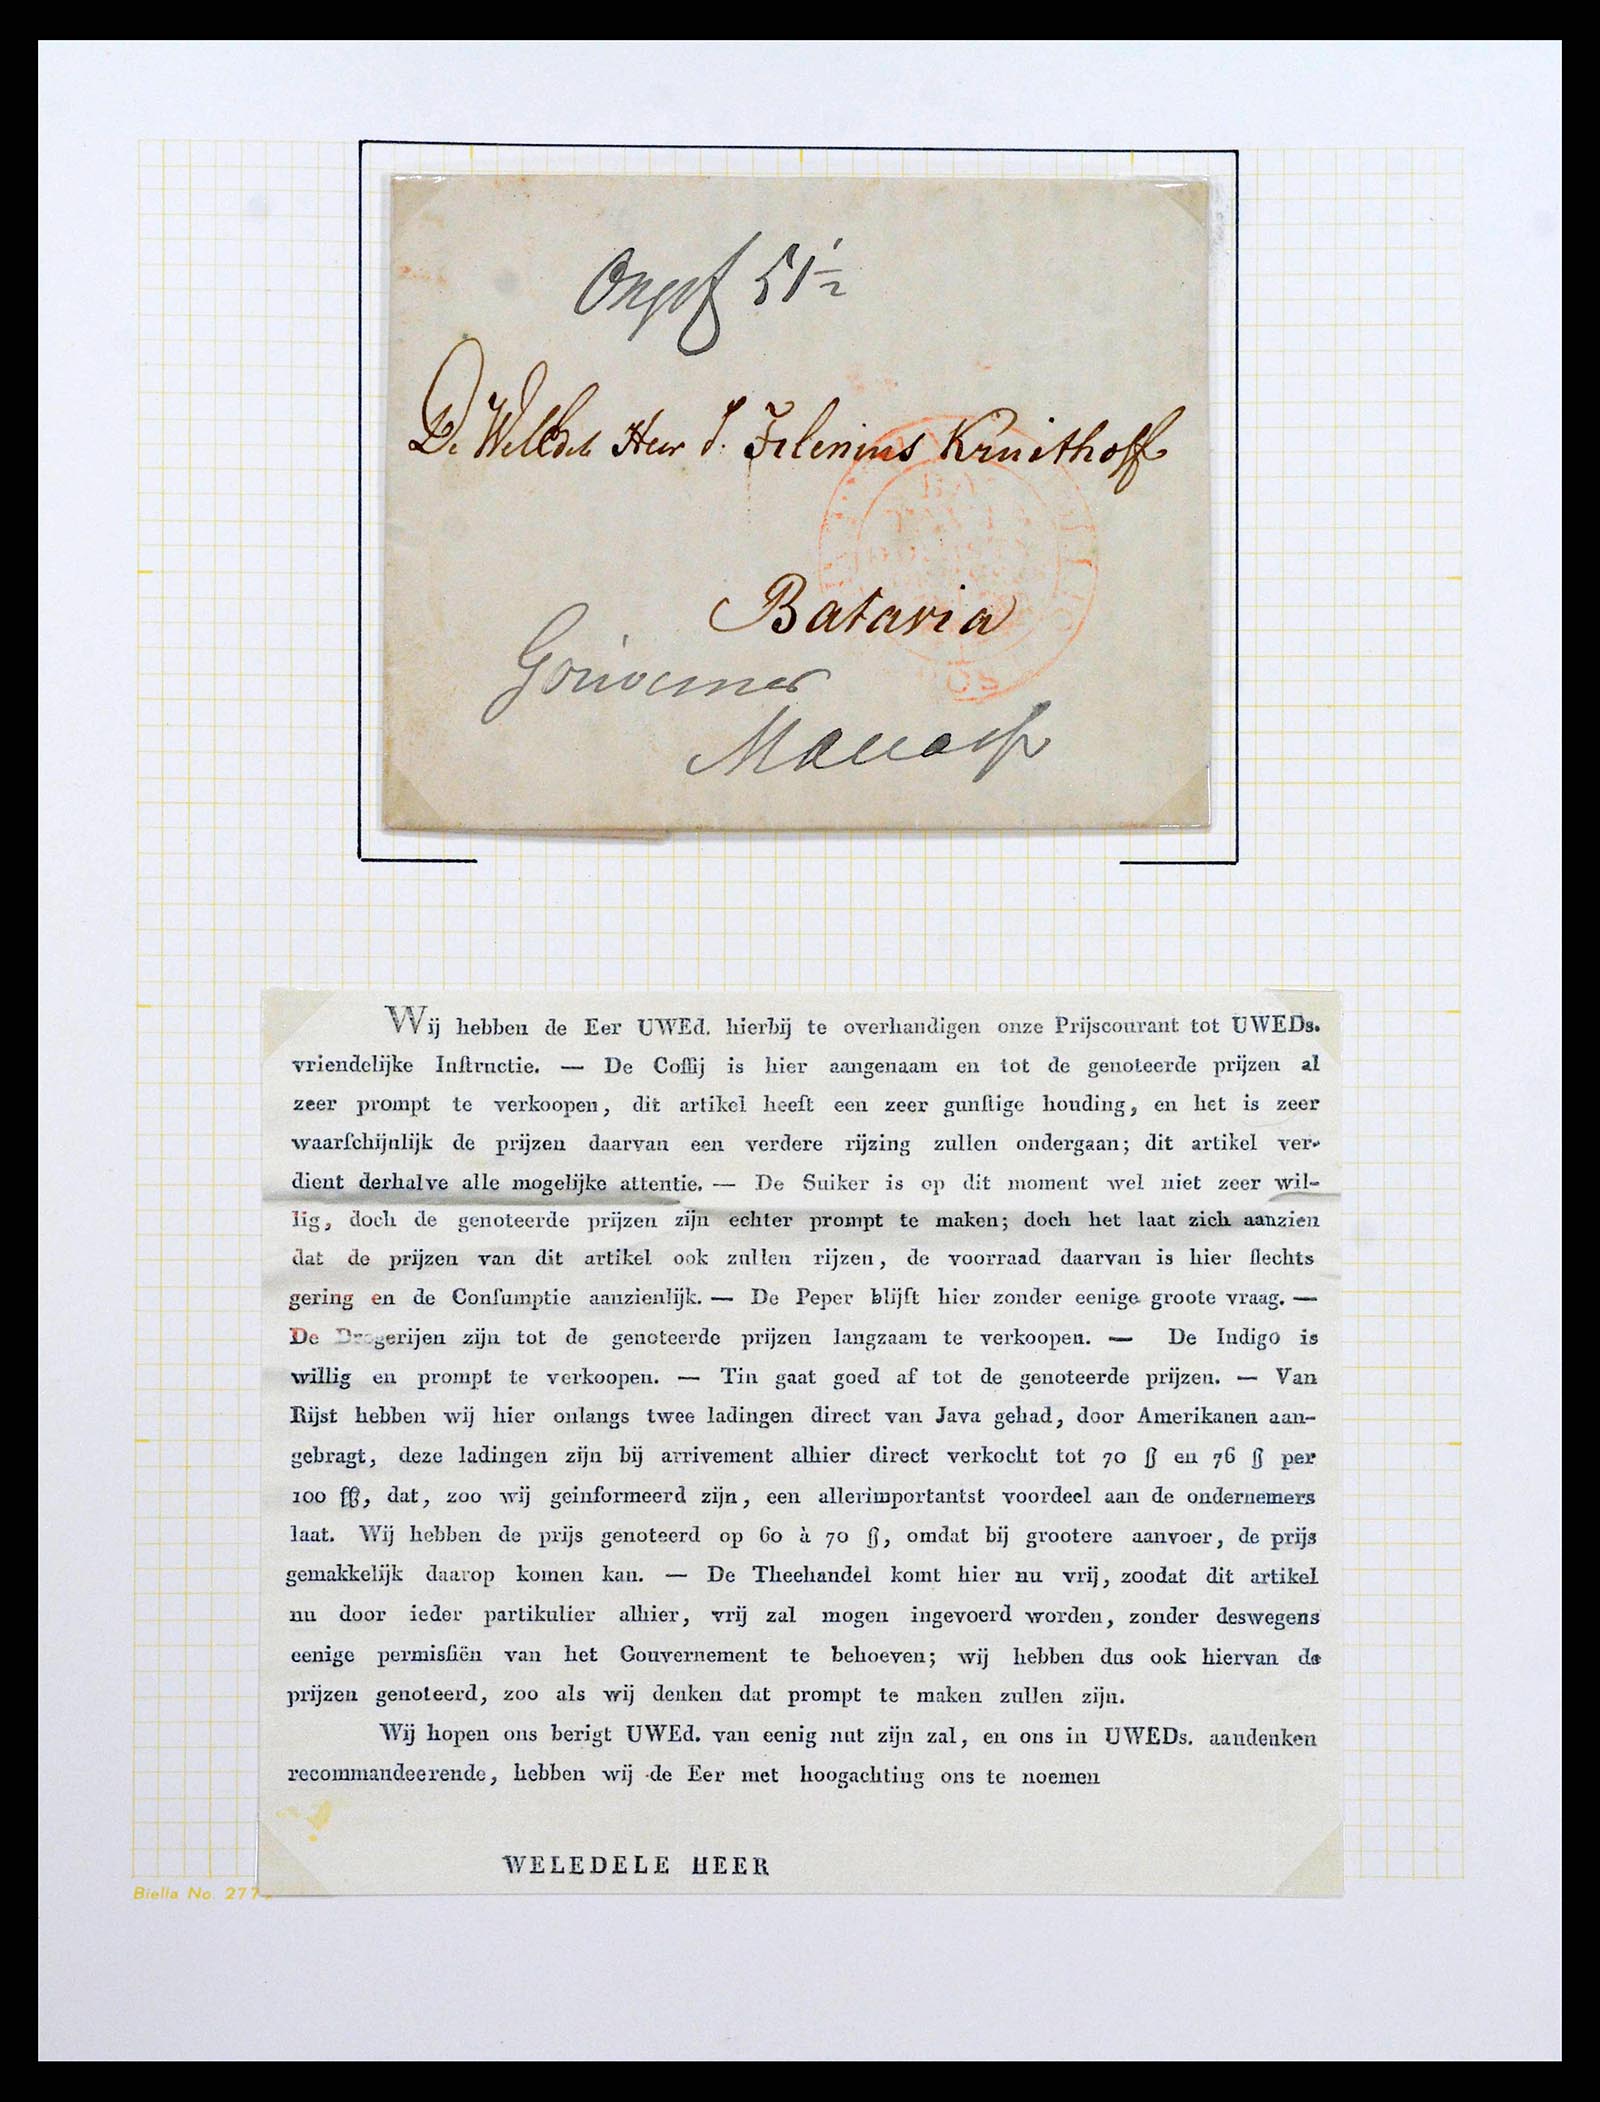 51 1/2
De WelEdele Heer J. Jelenius Kruithoff
Batavia
Gouverneur
Wij hebben de Eer UWEd. hierbij te overhandigen onze Prijscourant tot UWEDs.
vriendelijke Inſtructie. — De Coffij is hier aangenaam en tot de genoteerde prijzen al
zeer prompt te verkoopen, dit artikel heeft een zeer gunſtige houding, en het is zeer
waarſchijnlijk de prijzen daarvan een verdere rijzing zullen ondergaan; dit artikel ver-
dient derhalve alle mogelijke attentie. — De Suiker is op dit moment wel niet zeer wil-
lig, doch de genoteerde prijzen zijn echter prompt te maken; doch het laat zich aanzien
dat de prijzen van dit artikel ook zullen rijzen, de voorraad daarvan is hier ſlechts
gering en de Conſumptie aanzienlijk. — De Peper blijft hier zonder eenige groote vraag. —
De Drogerijen zijn tot de genoteerde prijzen langzaam te verkoopen. — De Indigo is
willig en prompt te verkoopen. — Tin gaat goed af tot de genoteerde prijzen. — Van
Rijst hebben wij hier onlangs twee ladingen direct van Java gehad, door Amerikanen aan-
gebragt, deze ladingen zijn bij arrivement alhier direct verkocht tot 70 ß en 76 ß per
100 ℔, dat, zoo wij geinformeerd zijn, een allerimportantst voordeel aan de ondernemers
laat. Wij hebben de prijs genoteerd op 60 à 70 ß, omdat bij grootere aanvoer, de prijs
gemakkelijk daarop komen kan. — De Theehandel komt hier nu vrij, zoodat dit artikel
nu door ieder partikulier alhier, vrij zal mogen ingevoerd worden, zonder deswegens
eenige permisſiën van het Gouvernement te behoeven; wij hebben dus ook hiervan de
prijzen genoteerd, zoo als wij denken dat prompt te maken zullen zijn.
Wij hopen ons berigt UWEd. van eenig nut zijn zal, en ons in UWEDs. aandenken
recommandeerende, hebben wij de Eer met hoogachting ons te noemen
WELEDELE HEER
Biella No. 277